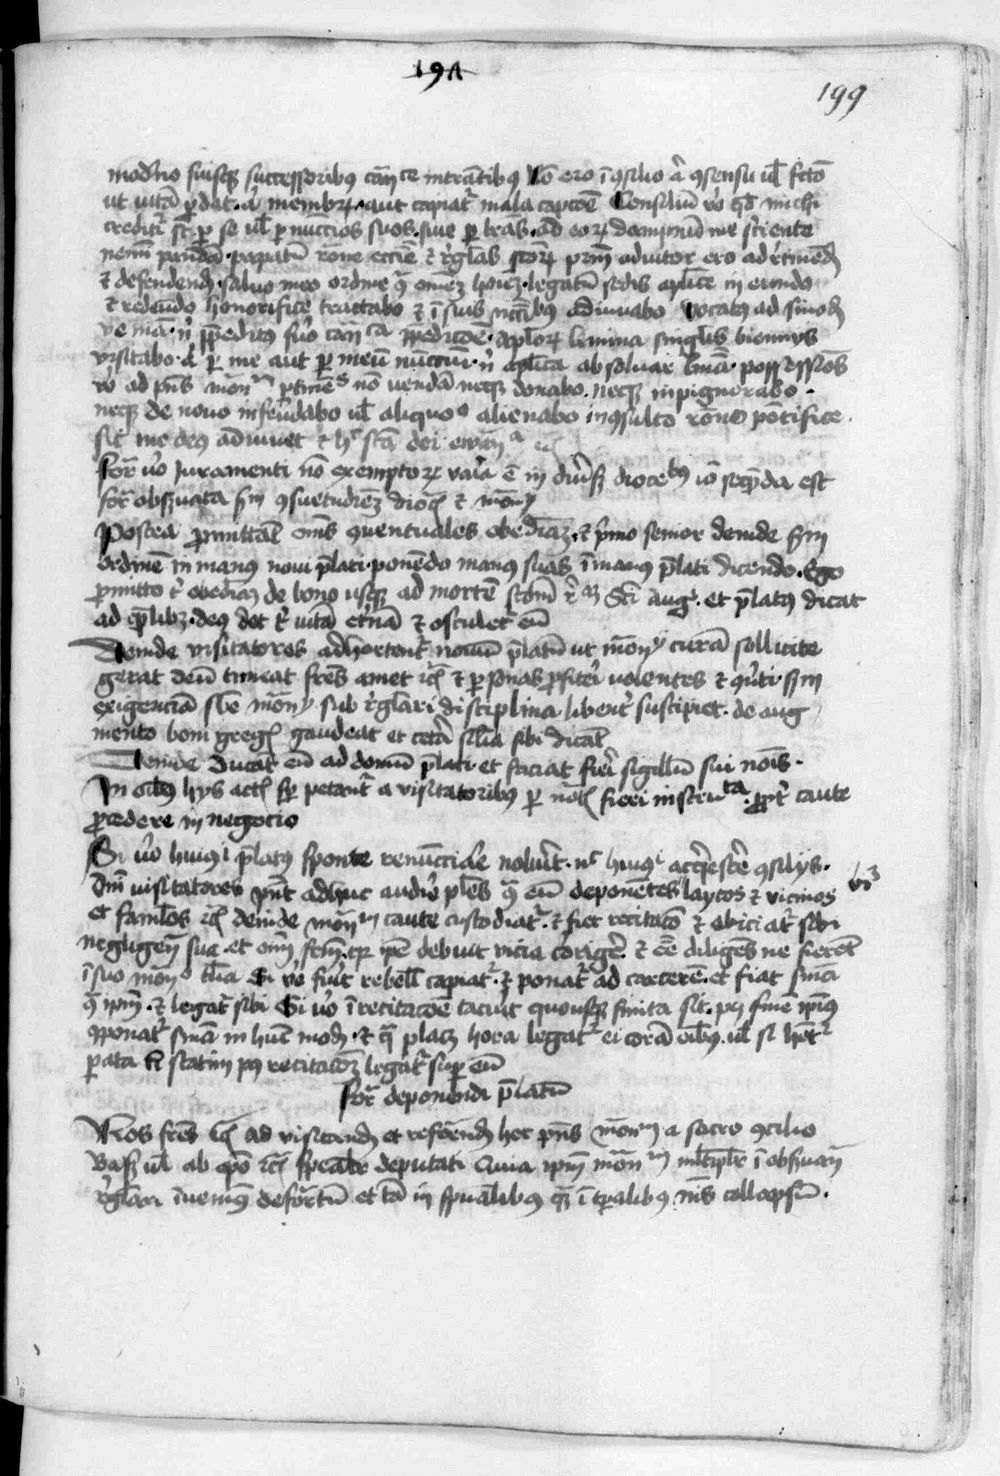 194
199
moderno suisque successoribus canonice intrantibus Non ero in consilio aut consensu vel facto
ut vitam perdat aut membrum aut capiatur mala captione Consilium vero quod michi
creditur sunt per se vel per nuncios suos sive per litteras ad eorum dampnum me sciente
nemini pandam papatum romane ecclesie et regulas sanctorum patrum adiutor ero ad retinendum
et defendendum salvo meo ordine contra omnem hominem legatum sedis apostolice in eundo
et redeundo honorifice tractabo et in suis necessitatibus adiuvabo Vocatus ad sinodum
veniam nisi prepeditus fuero canonica prepeditione apostolorum limina singulis bienniis
visitabo aut per me aut per meum nuncium nisi apostolica absolvar licentia possessiones
vero ad presens monasterium pertinentes non vendam neque donabo neque inpignorabo
neque de novo infeudabo vel aliquo modo alienabo inconsulto romano pontifice
sic me deus adiuvet et hec sancta dei ewangelia
Forma vero Juramenti non exemptorum varia est in diversis diocesibus ideo est
forma observata secundum consuetudinem diocesis et monasterii
Postea promittant omnes conventuales obedienciam et primo senior deinde secundum
ordinem in manus novi prelati ponendo manus suas in manus prelati dicendo Ego
promitto tibi obedienciam de bono usque ad mortem secundum regulam Sancti Augustini et prelatus dicat
ad quemlibet deus det tibi vitam eternam et osculetur eum
Deinde visitatores adhortentur novum prelatum ut monasterii curam sollicite
gerat deum timeat fratres amet etc et personas profiteri volentes et converti secundum
exigenciam monasterii sub regulari disciplina libenter suscipiet de aug
mento boni gregis gaudeat et cetera similia sibi dicant
Deinde ducant eum ad domum prelati et faciat fieri sigillum sui nominis
In omnibus hiis actis semper petantur a visitatoribus per notarios fieri instrumenta propter caute
procedere in negocio
Si vero huiusmodi prelatus sponte renunciare noluerit nec huiusmodi acquiescere consiliis
domini visitatores possunt adhuc audire plures contra eum deponentes laycos et vicinos
et famulos etc deinde monasterium caute custodiatur et fiet recitatio et obiciatur sibi
negligencia sua et quia ipse debuit vicia corrigere et esse diligens ne fierent
in suo monasterio talia Si vero fuerit rebellis capiatur et ponatur ad carcerem et fiat sententia
contra ipsum et legatur sibi Si vero in recitatione tacuerit quousque finita sit post finem ipsius
componatur sententia in hunc modum et qua placet hora legatur ei coram omnibus vel si habetur
parata tunc statim post recitationem legatur super eum
Forma deponendi prelatum
Nos fratres etc ad visitandum et reformandum hoc presens monasterium a sacro concilio
Basiliensi vel ab episcopo etc specialiter deputati Quia ipsum monasterium multipliciter in observancia
regulari invenimus deformatum et tam in spiritualibus quam in temporalibus nimis collapsum